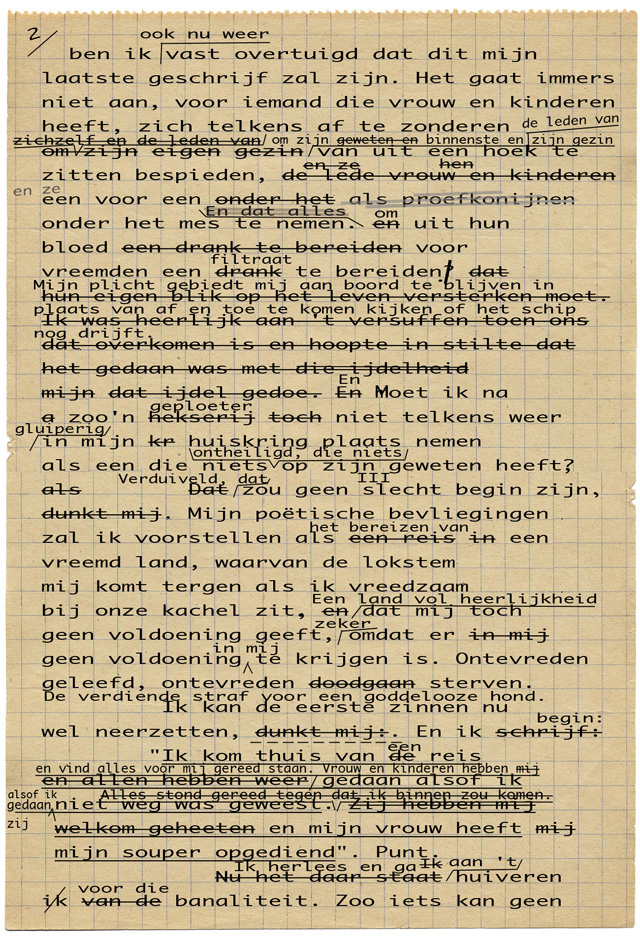 2/
ook nu weer
ben ik vast overtuigd dat dit mijn
laatste geschrijf zal zijn. Het gaat immers
niet aan, voor iemand die vrouw en kinderen
heeft, zich telkens af te zonderen de leden van
zichzelf en de leden van/ om zijn geweten en binnenste en zijn gezin
om zijn eigen gezin/van uit een hoek te
en ze hen
zitten bespieden, de lede vrouw en kinderen
en ze
een voor een onder het als proefkonijnen
En dat alles om
onder het mes te nemen. en uit hun
bloed een drank te bereiden voor
filtraat
vreemden een drank te bereiden! dat
Mijn plicht gebiedt mij aan boord te blijven in
hun eigen blik op het leven versterken moet.
plaats van af en toe te komen kijken of het schip
Ik was heerlijk aan 't versuffen toen ons
nog drijft.
dat overkomen is en hoopte in stilte dat
het gedaan was met die ijdelheid
En
mijn dat ijdel gedoe. En Moet ik na
geploeter
a zoo'n hekserij toch niet telkens weer
gluiperig/
/in mijn kr huiskring plaats nemen
\ontheiligd, die niets/
als een die niets op zijn geweten heeft?
Verduiveld, dat III
als Dat/zou geen slecht begin zijn,
dunkt mij. Mijn poëtische bevliegingen
het bereizen van
zal ik voorstellen als een reis in een
vreemd land, waarvan de lokstem
mij komt tergen als ik vreedzaam
Een land vol heerlijkheid
bij onze kachel zit, en/dat mij toch
zeker
geen voldoening geeft,/omdat er in mij
in mij
geen voldoening te krijgen is. Ontevreden
geleefd, ontevreden doodgaan sterven.
De verdiende straf voor een goddelooze hond.
Ik kan de eerste zinnen nu
begin:
wel neerzetten, dunkt mij:. En ik schrijf:
een
"Ik kom thuis van de reis
en vind alles voor mij gereed staan. Vrouw en kinderen hebben mij
en allen hebben weer/gedaan alsof ik
alsof ik Alles stond gereed tegen dat ik binnen zou komen.
gedaan, niet weg was geweest. Zij hebben mij
zij
welkom geheeten en mijn vrouw heeft mij
mijn souper opgediend". Punt.
Ik herlees en ga Ik aan 't/
Nu het daar staat/huiveren
voor die
ik van de banaliteit. Zoo iets kan geen